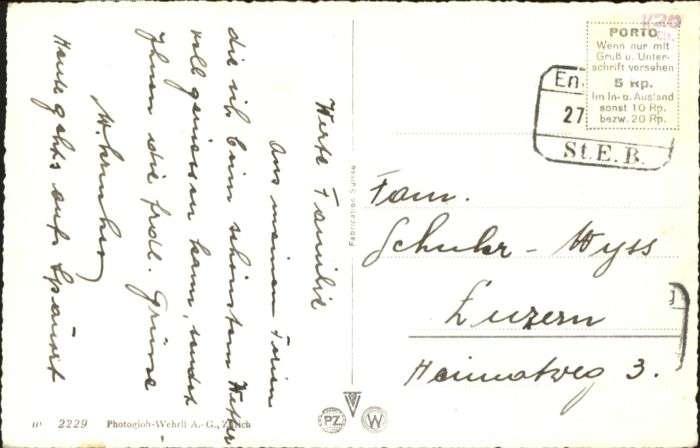 Werte Familie
Aus meinen Ferien
die ich beim schönsten Wetter
voll geniessen kann, sendet
Ihnen die frdl. Grüsse
Heute gehts aufs
PORTO
Wenn nur mit
Gruß u. Unter-
schrift versehen
5 Rp.
Im In- u. Ausland
sonst 10 Rp.
bezw. 20 Rp.
En
27
St. E. B.
Fam.
Schuhr - Wyss
Luzern
Heimatweg 3.
Fabrication Suisse
2229 Photoglob-Wehrli A.-G., Zürich
PZ
W